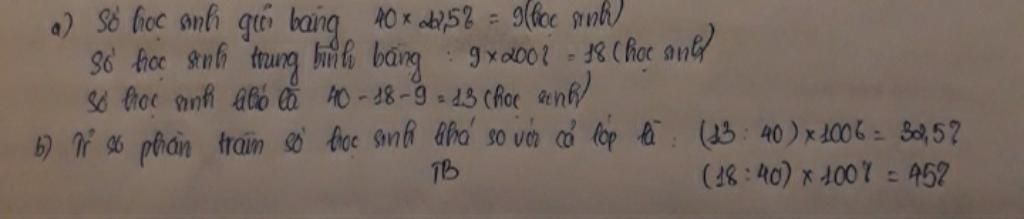 a) Số học sinh giỏi bằng 40 × 22,5% = 9 (học sinh)
Số học sinh trung bình bằng : 9 × 200% = 18 (học sinh)
Số học sinh khá là 40 - 18 - 9 = 13 (học sinh)
b) Tỉ số phần trăm số học sinh khá so với cả lớp là : (13 : 40) × 100% = 32,5%
TB (18 : 40) × 100% = 45%